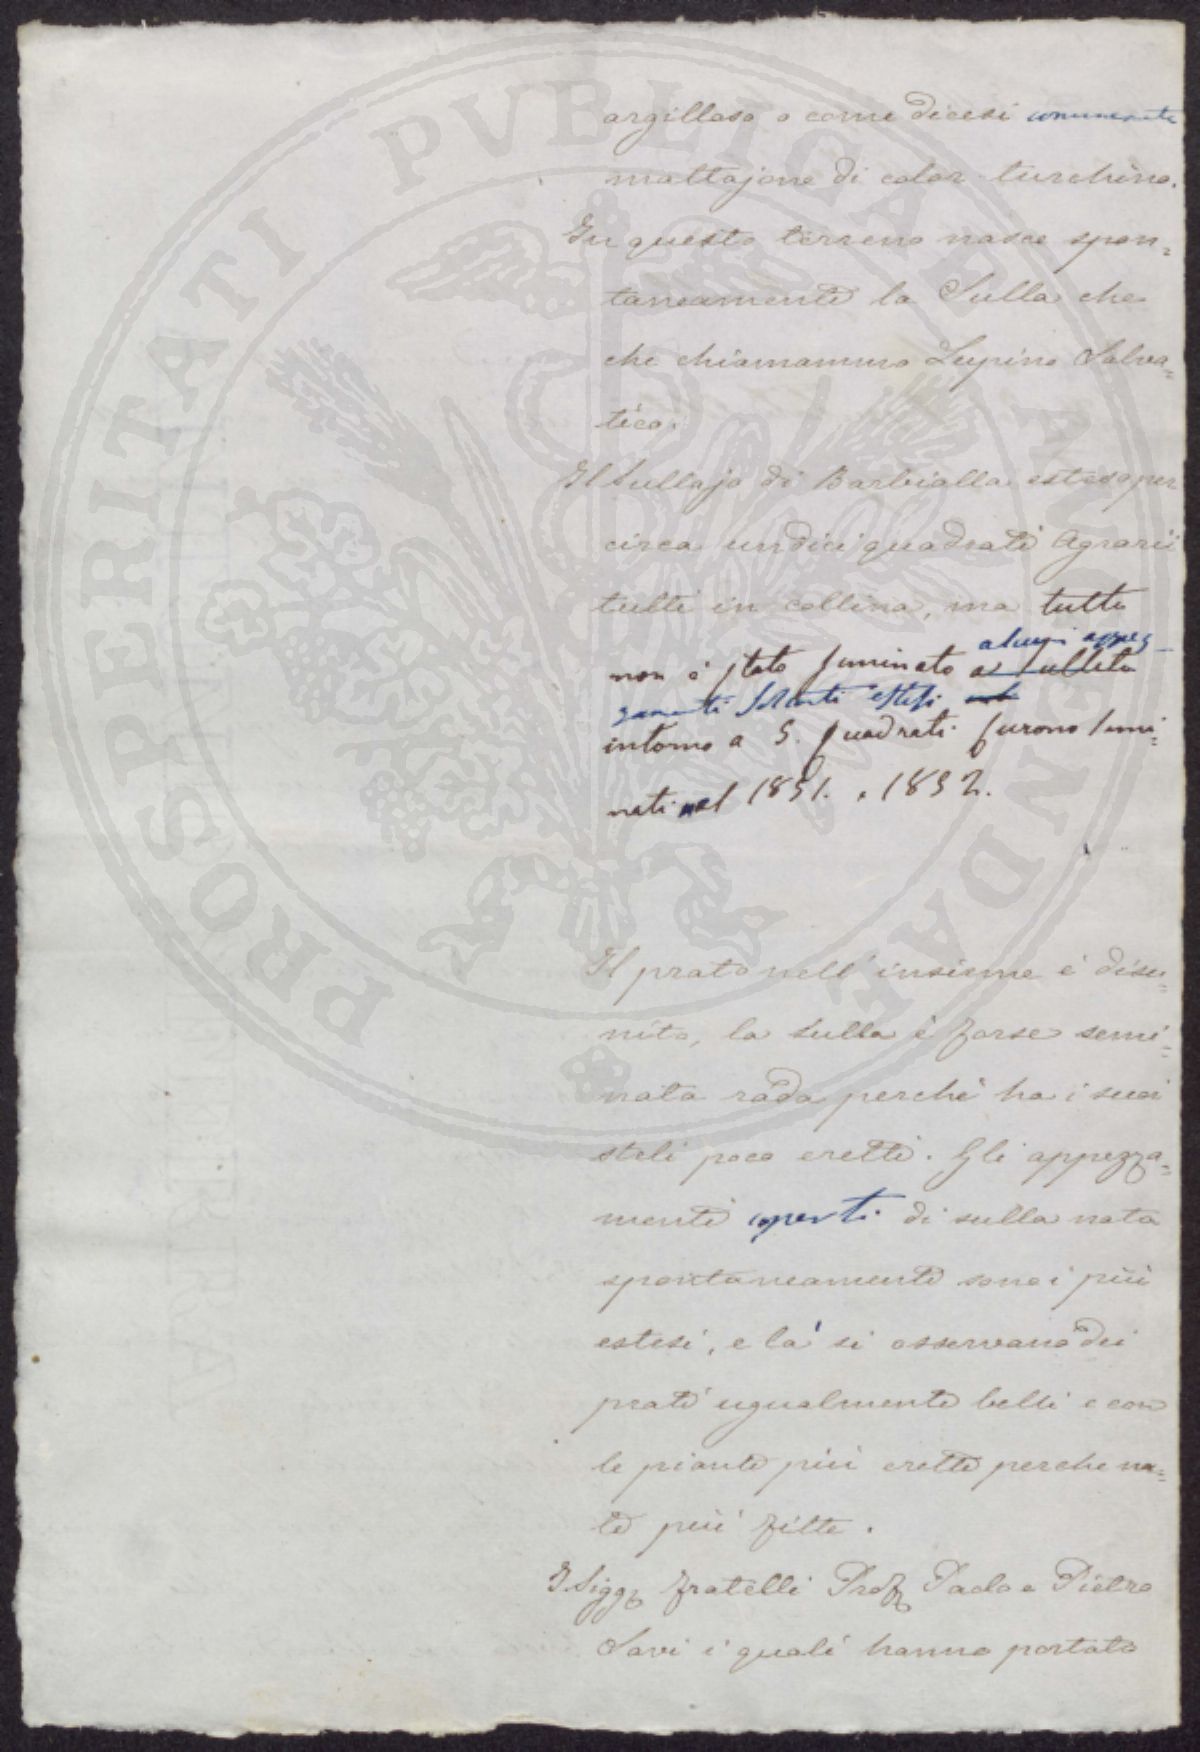 argilloso o come dicesi comunemente
mattajone di color turchino.
In questo terreno nasce spon=
taneamente la Sulla che
che chiamammo Lupino Salva=
tico.
Il Sullajo di Barbialla esteso per
circa undici quadrati Agrarii
tutti in collina, ma tutto
non è stato seminato a sulleto
alcuni appez-
zamenti soltanto estesi
intorno a 5. quadrati furono semi=
nati nel 1851. e 1852.
Il prato nell'insieme è disu=
nito, la sulla è forse semi=
nata rada perchè ha i suoi
steli poco eretti. Gli appezza=
menti coperti di sulla nata
spontaneamente sono i più
estesi, e là si osservano dei
prati ugualmente belli e con
le piante più erette perche na=
te più fitte.
I Sigg. fratelli Prof. Paolo e Pietro
Savi i quali hanno portato
PROSPERITATI PVBLICAE AVGENDAE